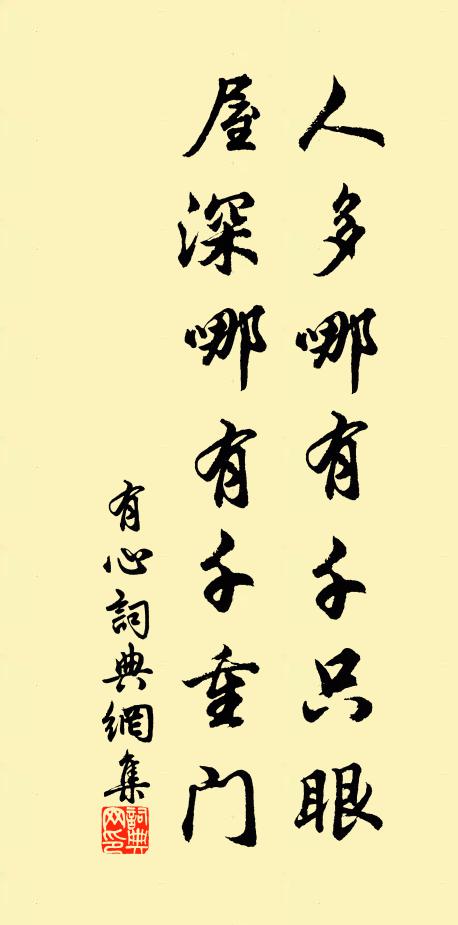 人多哪有千只眼
屋深哪有千重门
有心詞典網集
詞典
网印